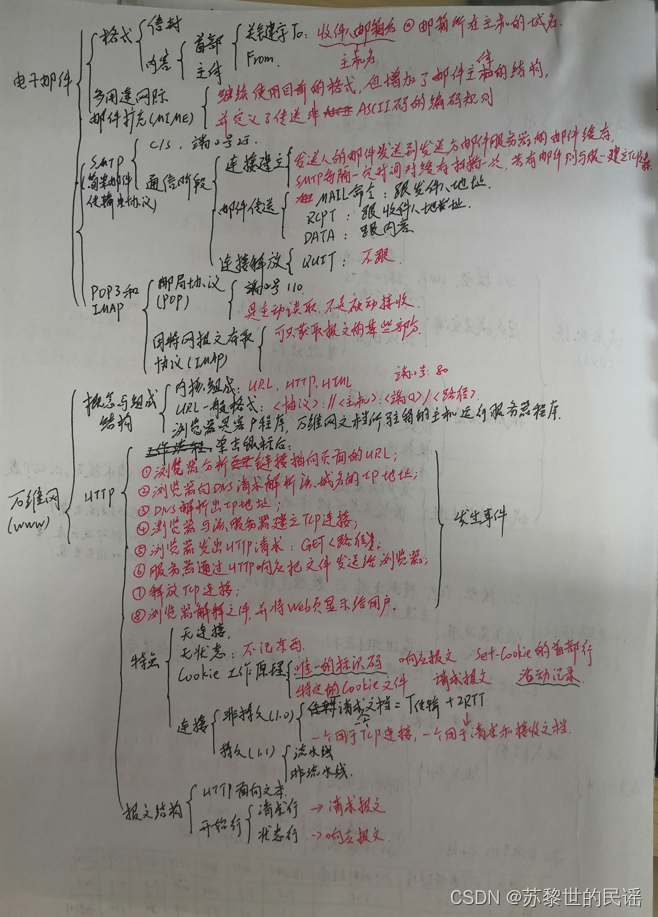 电子邮件
格式
信封
内容
首部
关键字To: 收件人邮箱名@邮箱所在主机的域名.
From.
主机名.
主体
多用途网际
邮件扩充(MIME)
继续使用目前的格式,但增加了邮件主体的结构,
并定义了传送非ASCII码的编码规则
SMTP
(简单邮件
传输协议)
C/S, 端口号25.
通信阶段
连接建立
发送人的邮件发送到发送方邮件服务器的邮件缓存,
SMTP每隔一定时间对缓存扫描一次,
邮件传送
MAIL命令: 跟发件人地址.
RCPT: 跟收件人地址.
DATA: 跟内容.
连接释放
QUIT: 不跟.
POP3和
IMAP
邮局协议
(POP)
端口号110
是主动读取,不是被动接收.
因特网报文存取
协议(IMAP)
可只读取报文的某些部分
万维网
(www)
概念与组成
结构
内核组成: URL, HTTP, HTML
端口号: 80
URL一般格式: <协议>://<主机>:<端口>/<路径>.
浏览器是客户程序, 万维网文档所驻留的主机运行服务器程序.
HTTP
单击鼠标后:
①浏览器分析链接指向页面的URL;
②浏览器向DNS请求解析该域名的IP地址;
③DNS解析出IP地址;
④浏览器与该服务器建立TCP连接;
⑤浏览器发出HTTP请求: GET<路径>;
⑥服务器通过HTTP响应把文件发送给浏览器;
⑦释放TCP连接;
⑧浏览器解释文件,并将Web页显示给用户.
发生事件
特点
无连接.
无状态: 不记东西.
Cookie工作原理
唯一的标识码 响应报文 Set-Cookie的首部行
特定的Cookie文件 请求报文 活动记录.
连接
非持久(1.0)
请求文档=T传输+2RTT
一个用于TCP连接, 一个用于请求和接收文档.
持久(1.1)
流水线
非流水线.
报文结构
HTTP面向文本.
开始行
请求行 → 请求报文
状态行 → 响应报文.
CSDN @苏黎世的民谣